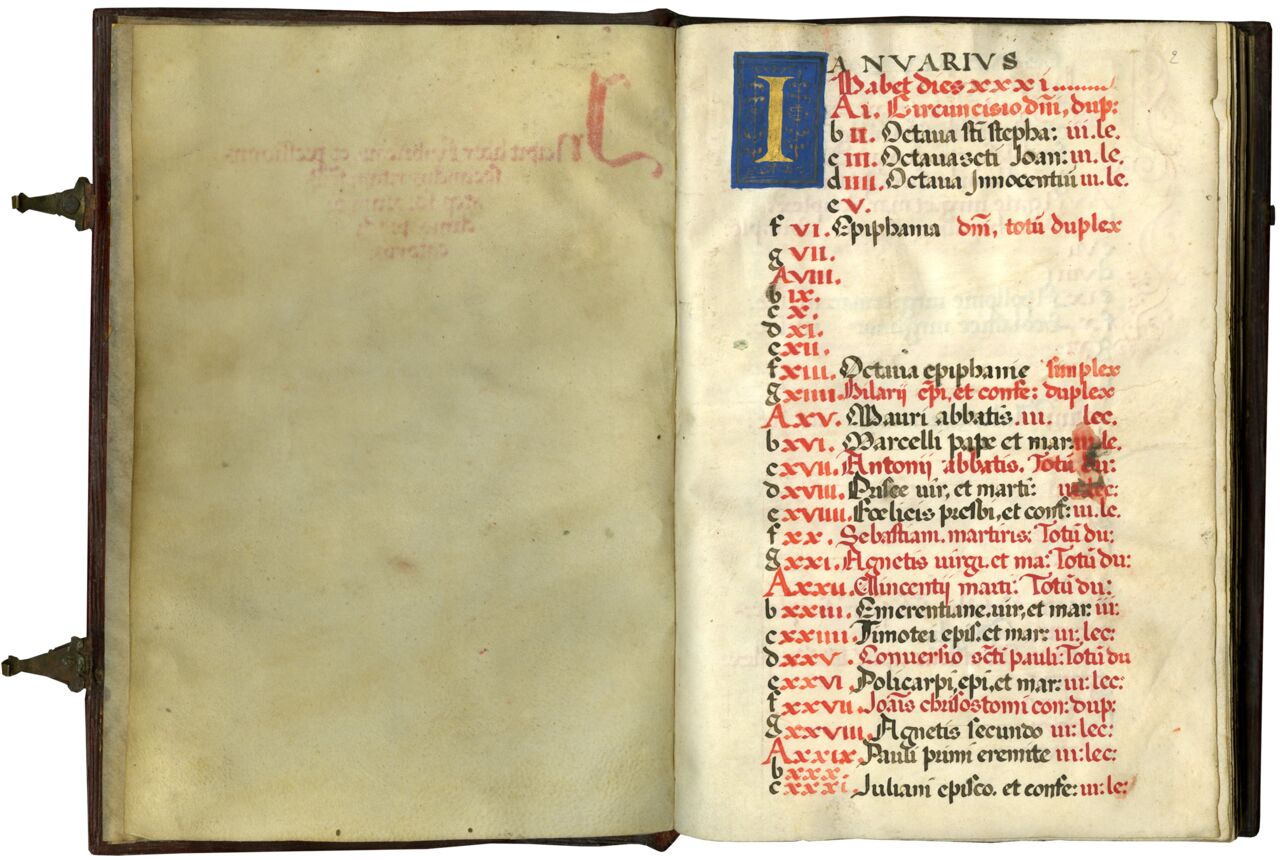 IANVARIVS
Habet dies xxxi........
A I. Circuncisio dñi, dup:
b II. Octaua sti stepha: iii. le.
c III. Octaua scti Joan: iii. le.
d IIII. Octaua Innocentiū iii. le.
e V.
f VI. Epiphania dñi, totū duplex
g VII.
A VIII.
b IX.
c X.
d XI.
e XII.
f XIII. Octaua epiphanie simplex
g XIIII. Hilarij epi, et confe: duplex
A XV. Mauri abbatis. iii. lec.
b XVI. Marcelli pape et mar: iii. le.
c XVII. Antonij abbatis. Totū du:
d XVIII. Prisce uir, et marti: iii. lec:
e XVIIII. Fœlicis presbi, et conf: iii. le.
f XX. Sebastiani. martiris: Totū du:
g XXI. Agnetis virgi. et ma: Totū du:
A XXII. Vincentij marti: Totū du:
b XXIII. Emerentiane. uir, et mar: iii:
c XXIIII. Timotei epis. et mar: iii: lec:
d XXV. Conuersio scti pauli: Totū du
e XXVI Policarpi, epi, et mar: iii: lec:
f XXVII. Joāis chrisostomi con: dup:
g XXVIII. Agnetis secundo iii: lec:
A XXIX. Pauli primi eremite iii: lec:
b XXX.
c XXXI. Juliani episco. et confe: iii: le: